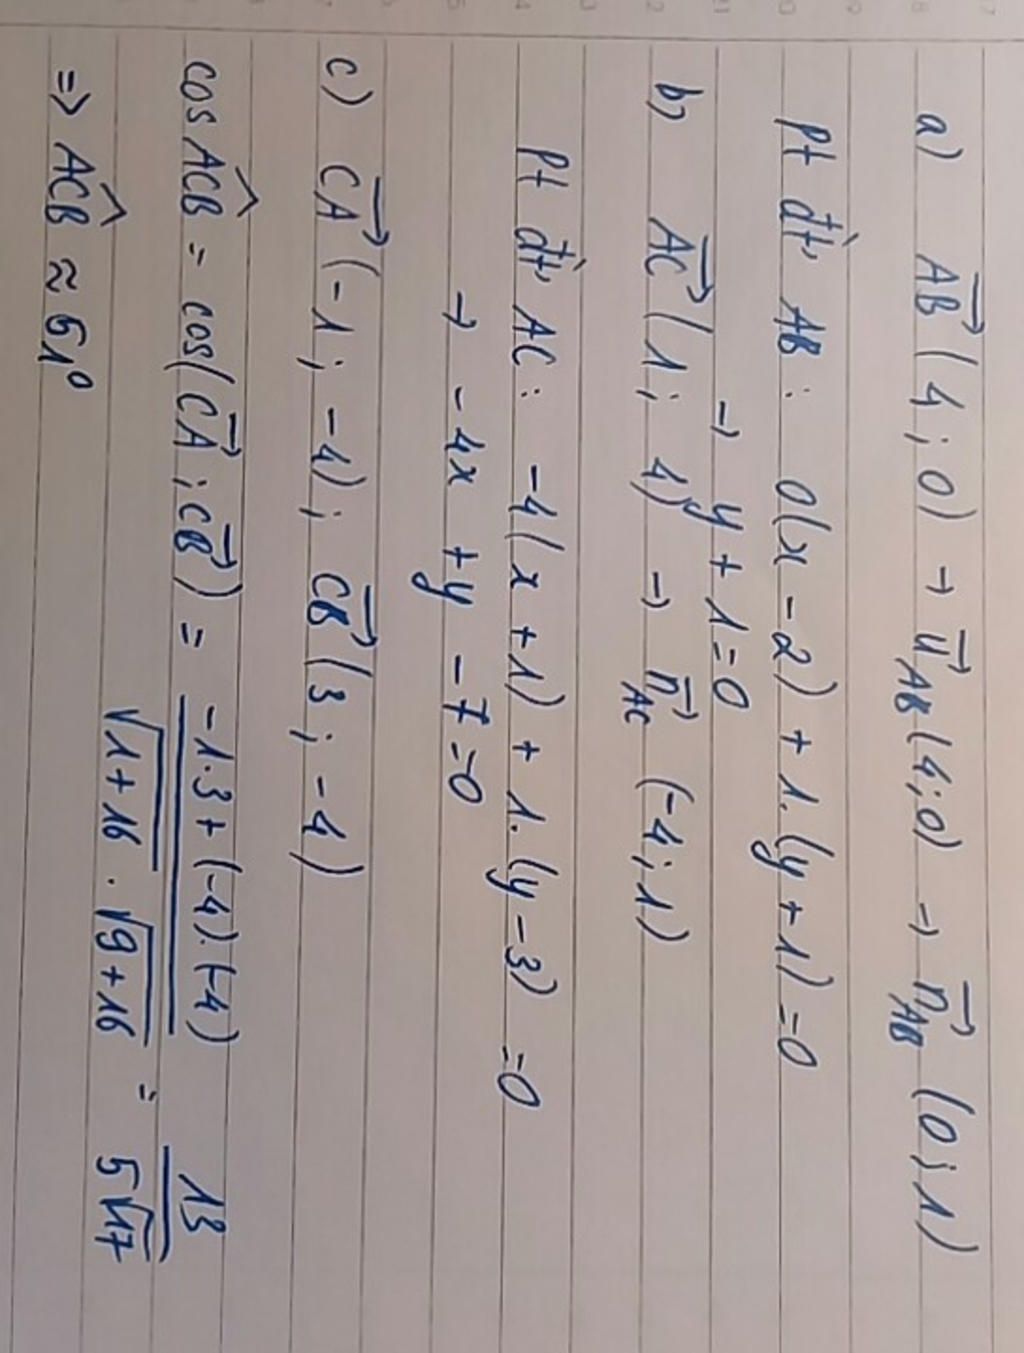 a) AB→ (4; 0) → u→AB (4; 0) → n→AB (0; 1)
Pt đt AB: 0(x - 2) + 1.(y + 1) = 0
→ y + 1 = 0
b) AC→ (1; 4) → n→AC (-4; 1)
Pt đt AC: -4(x + 1) + 1.(y - 3) = 0
→ -4x + y - 7 = 0
c) CA→ (-1; -4); CB→ (3; -4)
cos ACB^ = cos(CA→; CB→) = (-1.3 + (-4).(-4))/(√(1+16) . √(9+16)) = 13/(5√17)
=> ACB^ ≈ 51°